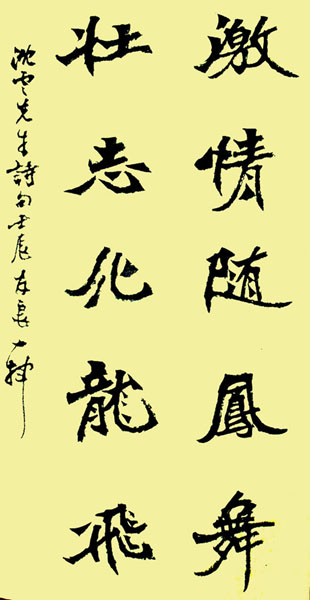 激情随鳳舞
壮志化龍飛
沈雲先生詩句壬辰友良